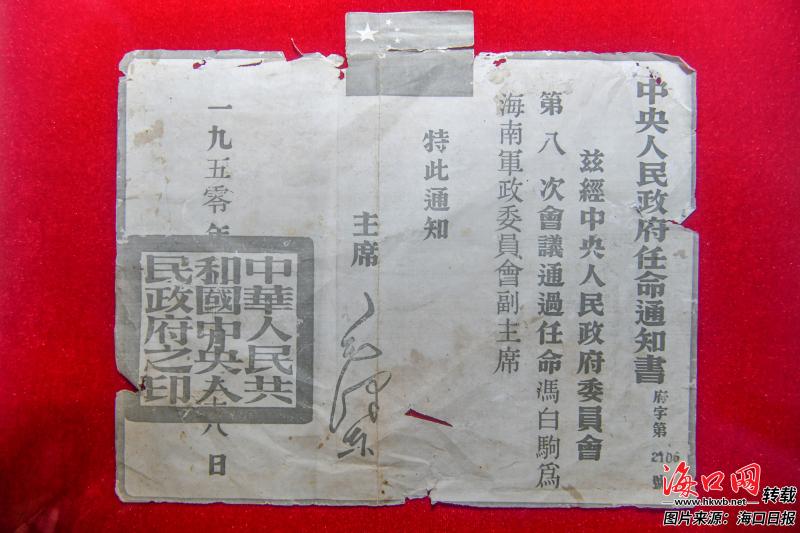 中央人民政府任命通知書
府字第2106號
茲經中央人民政府委員會
第八次會議通過任命馮白駒爲
海南軍政委員會副主席
特此通知
主席
毛澤東
一九五零年
八日
中華人民共
和國中央人
民政府之印
海口网
www.hkwb.net
转载
图片来源：海口日报